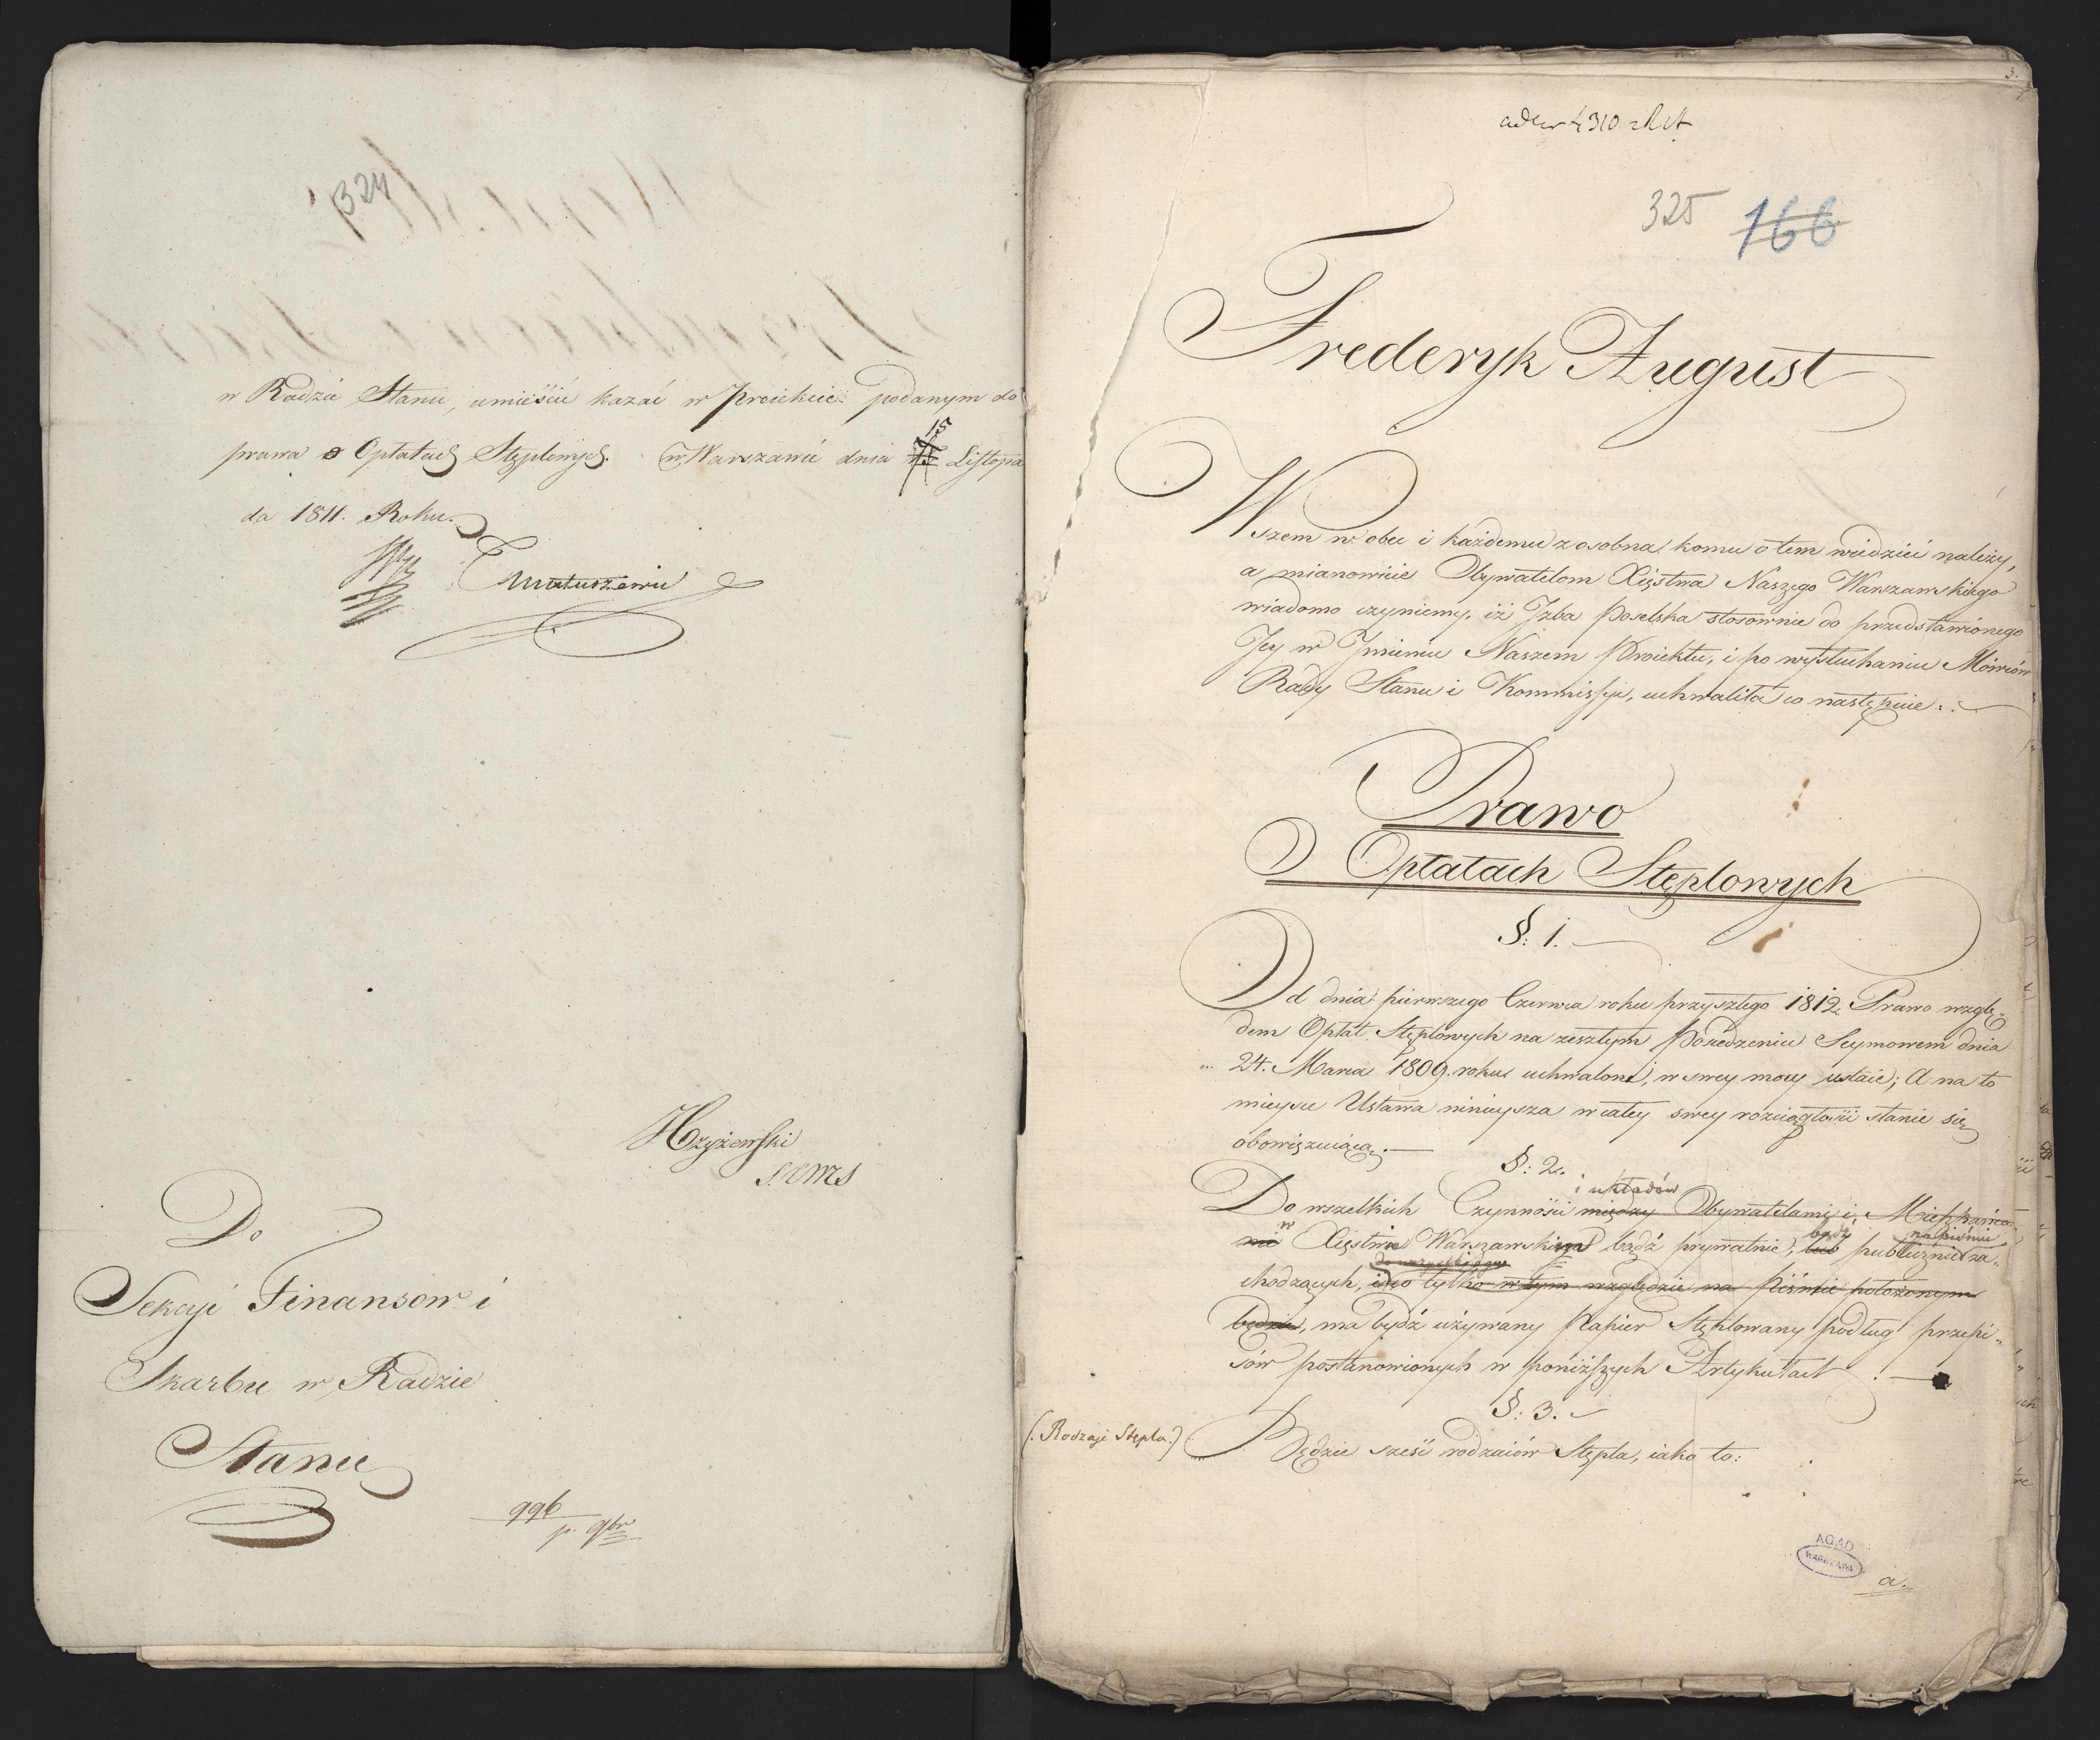 324
w Radzie Stanu, umieścić kazać w Proiekcie podanym do
prawa o Opłatach Stęplowych. w Warszawie dnia 15 Listopa
da 1811. Roku.
Matuszewic
Do
Sekcyi Finansow i
Skarbu w Radzie
Stanu
996
p. 9br
3.
325 166
Fryderyk August
Wszem w obec i każdemu z osobna komu o tem wiedzieć należy,
a mianowicie Obywatelom Xięstwa Naszego Warszawskiego
wiadomo czyniemy, iż Jzba Poselska stosownie do przedstawionego
Jey w Jmieniu Naszem Proiektu, i po wysłuchaniu Mówców
Rady Stanu i Kommissyi, uchwaliła co następuie:
Prawo
O Opłatach Stęplowych
§: 1.
Od dnia pierwszego Czerwca roku przyszłego 1812. Prawo wzglę-
dem Opłat Stęplowych na zeszłym Posiedzeniu Seymowem dnia
24. Marca 1809. roku uchwalone, w swey mocy ustaie; A na to
mieysce Ustawa ninieysza w całey swey rozciągłości stanie się
obowięzuiącą.
§: 2.
i układów
Do wszelkich Czynności między Obywatelami i Mieszkańca-
w bądź na piśmie
mi Xięstwie Warszawskiem bądź prywatnie, lub publicznie za-
chodzących, tylko w tym względzie na Piśmie położonym
będzie, ma bydź używany Papier Stęplowany podług przepi-
sów postanowionych w poniższych Artykułach.
§: 3.
(: Rodzaje Stępla :)
Będzie sześć rodzaiów Stępla, iako to:
AGAD
WARSZAWA
a.